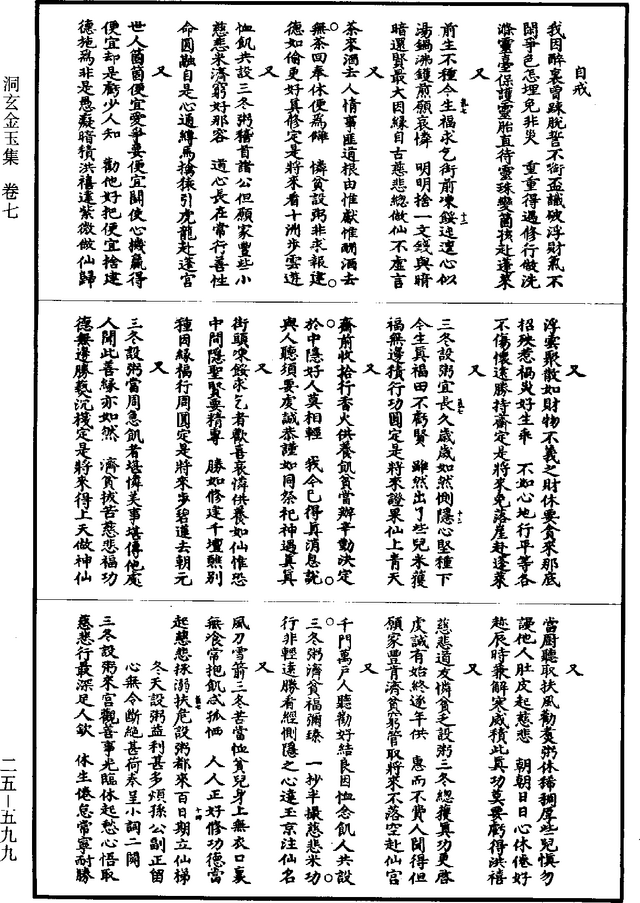 自戒
我因醉裏曾踈脫誓不銜盃識破浮財氣不
鬪爭色怎埋免非災　重重得遇修行做洗
滌靈臺保護靈胎直待靈珠變箇孩赴蓬萊
又
前生不種今生福求乞街前凍餒迍邅心似
湯鍋沸鑊煎願哀憐　明明捨一文錢與暗
暗還賢最大因緣自古慈悲總做仙不虛言
又
茶來酒去人情事匪道根由惟獻惟酬酒去
無茶回奉休便為讎　憐貧設粥非求報建
德如倫更好真修定是將來看十洲步雲遊
又
恤飢共設三冬粥稽首諸公但願家豐些小
慈悲米濟窮好那容　道心長在常行善性
命圓融自是心通縛馬擒猿引虎龍赴蓬宮
又
世人箇箇便宜愛爭要便宜關使心機贏得
便宜却是虧少人知　勸他好把便宜捨建
德施為非是愚癡暗積洪禧達紫微做仙歸
浮雲聚散如財物不義之財休要貪來那底
招殃惹禍災好生乖　不如心地行平等各
不傷懷遠勝持齋定是將來免落崖赴蓬萊
又
三冬設粥宜長久歲歲如然惻隱心堅種下
今生真福田不虧賢　雖然出了些兒米獲
福無邊積行功圓定是將來證果仙上青天
又
齋前收拾行香火供養飢貧當辦辛勤決定
於中隱好人莫相輕　我今已得真消息說
與人聽須要虔誠恭謹如同祭祀神遇真真
又
街頭凍餒求乞者歡喜哀憐供養如仙惟恐
中間隱聖賢要精專　勝如修建千壇醮別
種因緣福行周圓定是將來步碧蓮去朝元
又
三冬設粥當周急飢者堪憐美事堪傳他處
人聞此善緣亦如然　濟貧拔苦慈悲福功
德無邊勝熱沉檀定是將來得上天做神仙
又
當厨聽取扶風勸煑粥休稀稠厚些兒慎勿
謾他人肚皮起慈悲　朝朝日日心休倦好
趂辰時兼解寒威積此真功莫要虧得洪禧
又
慈悲道友憐貧乏設粥三冬總獲真功更啓
虔誠有始終遂年供　惠而不費人聞得但
願家豊肯濟貧窮管取將來不落空赴仙宮
又
千門萬戶人聽勸好結良因恤念飢人共設
三冬粥濟貧福彌臻　一抄半撮慈悲米功
行非輕遠勝看經惻隱之心達玉京注仙名
又
風刀雪箭三冬苦當恤貧兒身上無衣口裏
無飡常抱飢忒孤恓　人人正好修功德當
起慈悲拯溺扶危設粥都來百日期立仙梯
冬天設粥益利甚多煩孫公副正留
心無令斷絕甚荷奉呈小詞二闋
三冬設粥來宮觀善事光臨休起愁心悟取
慈悲行最深足人欽　休生倦怠常寧耐勝
洞玄金玉集　卷七
二五—五九九